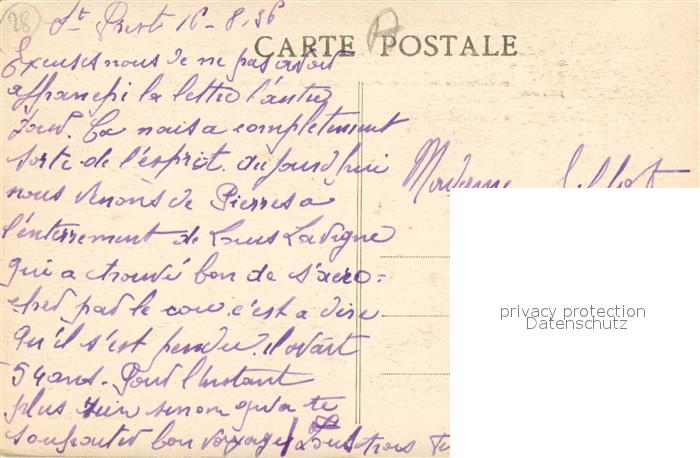 28
St Prest 16-8.36
CARTE POSTALE
Excuses nous de ne pas avoir
affranchi la lettre l'autre
jour. Ça nous a completement
sorte de l'esprit. aujourd'hui
nous venons de Pierres a
l'enterrement de Louis Lavigne
qui a trouvé bon de s'acro=
cher par le cou c'est a dire
qu'il s'est pendu. il avait
54 ans. Pour l'instant
plus rien sinon qu'a te
souhaiter bon voyage / Tous trois
Madame
privacy protection
Datenschutz